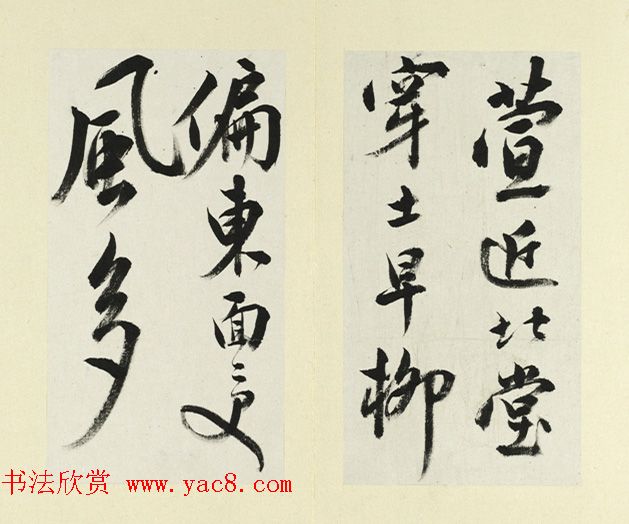 萱近北堂
穿土早柳
偏東面受
風多
书法欣赏 www.yac8.com